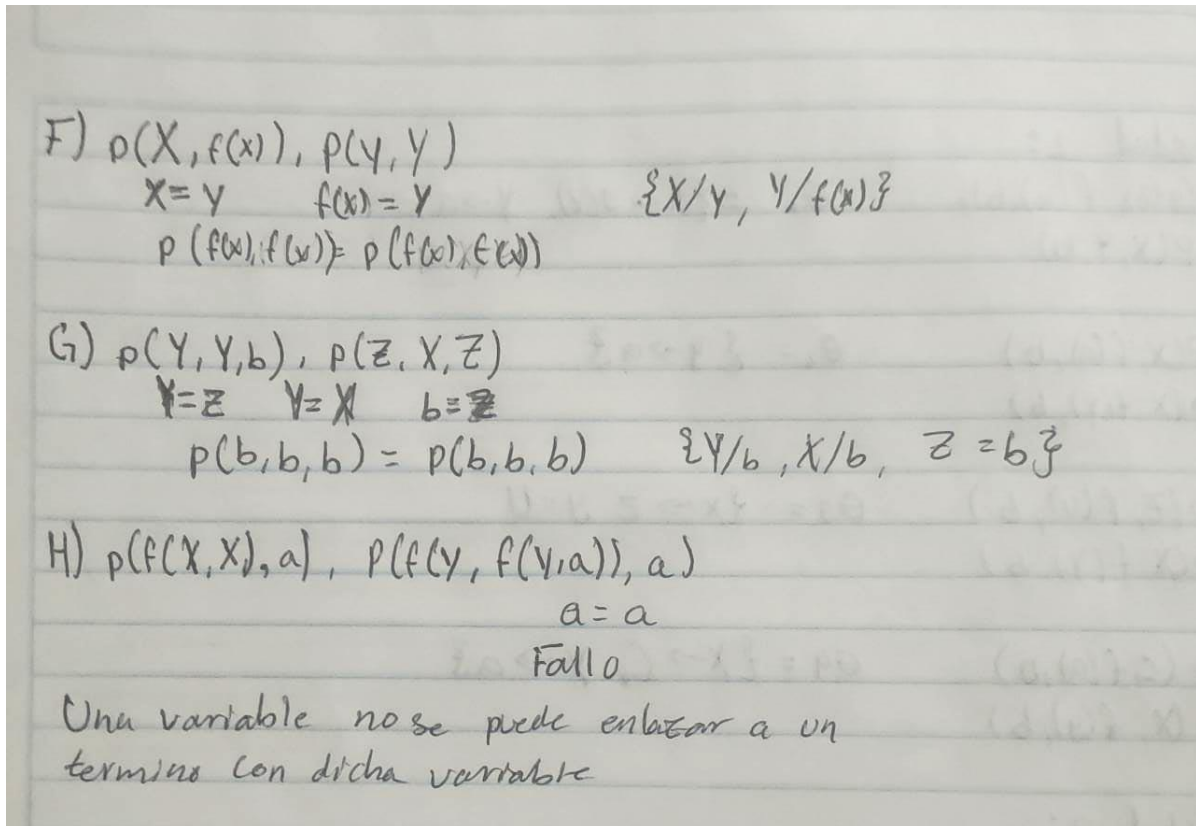 F) p(X, f(x)), p(y, y)
X = y f(x) = y {X/y, Y/f(x)}
p (f(x), f(x)) = p (f(x), f(x))
G) p(Y, Y, b), p(Z, X, Z)
Y = Z Y = X b = Z
p(b, b, b) = p(b, b, b) {Y/b, X/b, Z = b}
H) p(f(X, X), a), p(f(y, f(y, a)), a)
a = a
Fallo
Una variable no se puede enlazar a un
termino con dicha variable